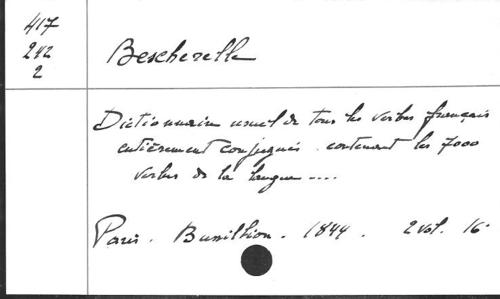 417
242
2
Bescherelle
Dictionnaire usuel de tous les verbes français
entièrement conjugués. contenant les 7000
verbes de la langue ....
Paris. 1844. 2 vol. 16°